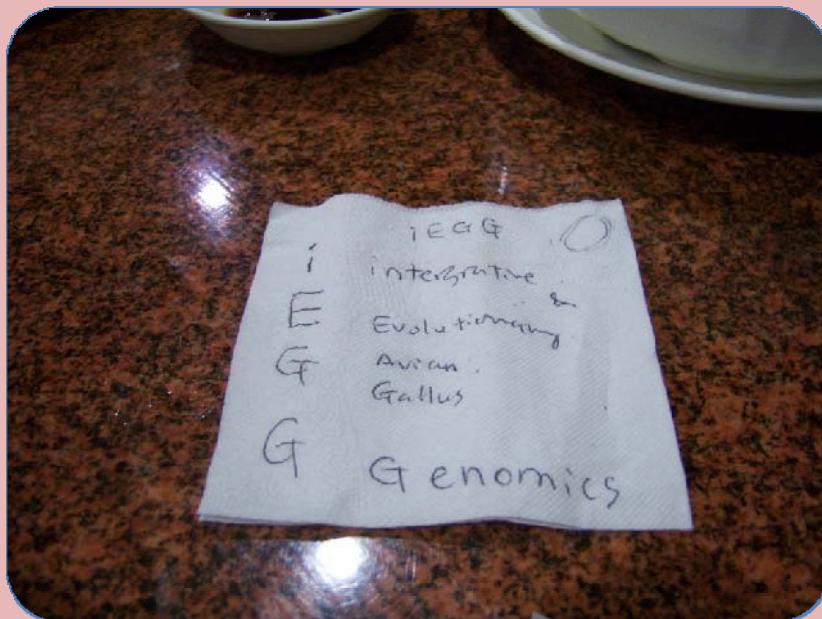 iEGG
i intergrative
&
E Evolutionary
G Avian
Gallus
G Genomics